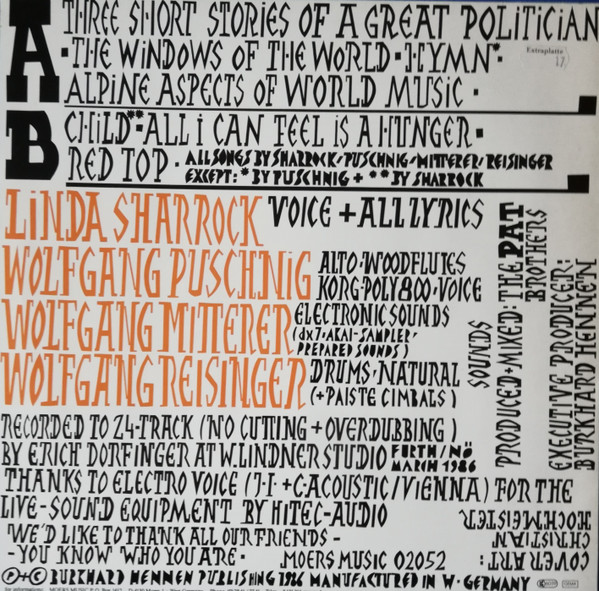 A
THREE SHORT STORIES OF A GREAT POLITICIAN
·THE WINDOWS OF THE WORLD·HYMN*·
ALPINE ASPECTS OF WORLD MUSIC ·
Extraplatte
B
CHILD**·ALL I CAN FEEL IS A HUNGER·
RED TOP · ALL SONGS BY SHARROCK/PUSCHNIG/MITTERER/REISINGER
EXCEPT: * BY PUSCHNIG + ** BY SHARROCK
LINDA SHARROCK VOICE + ALL LYRICS
WOLFGANG PUSCHNIG ALTO·WOODFLUTES
KORG·POLY 800·VOICE
WOLFGANG MITTERER ELECTRONIC SOUNDS
(dx7·AKAI-SAMPLER·
PREPARED SOUNDS)
WOLFGANG REISINGER DRUMS·NATURAL
(+PAISTE CIMBALS)
SOUNDS
PRODUCED+MIXED·THE PAT
BROTHERS
EXECUTIVE PRODUCER:
BURKHARD HENNEN
RECORDED TO 24-TRACK (NO CUTTING + OVERDUBBING)
BY ERICH DORFINGER AT W.LINDNER STUDIO FURTH/NÖ
MARCH 1986
THANKS TO ELECTRO VOICE (J·I·+CACOUSTIC/VIENNA) FOR THE
LIVE-SOUND EQUIPMENT BY HITEC-AUDIO
COVER ART:
CHRISTIAN
HOCHMEISTER
WE'D LIKE TO THANK ALL OUR FRIENDS -
-YOU KNOW WHO YOU ARE· MOERS MUSIC 02052
Ⓟ+© BURKHARD HENNEN PUBLISHING 1986 MANUFACTURED IN W·GERMANY